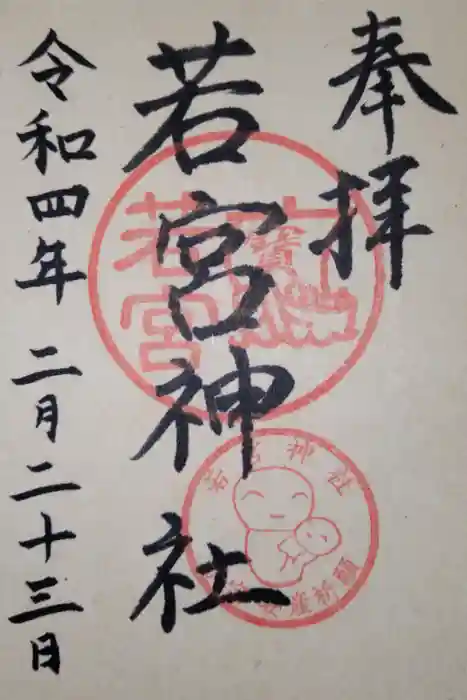 奉拝
若宮神社
令和四年二月二十三日
若宮
若宮神社
安産祈願